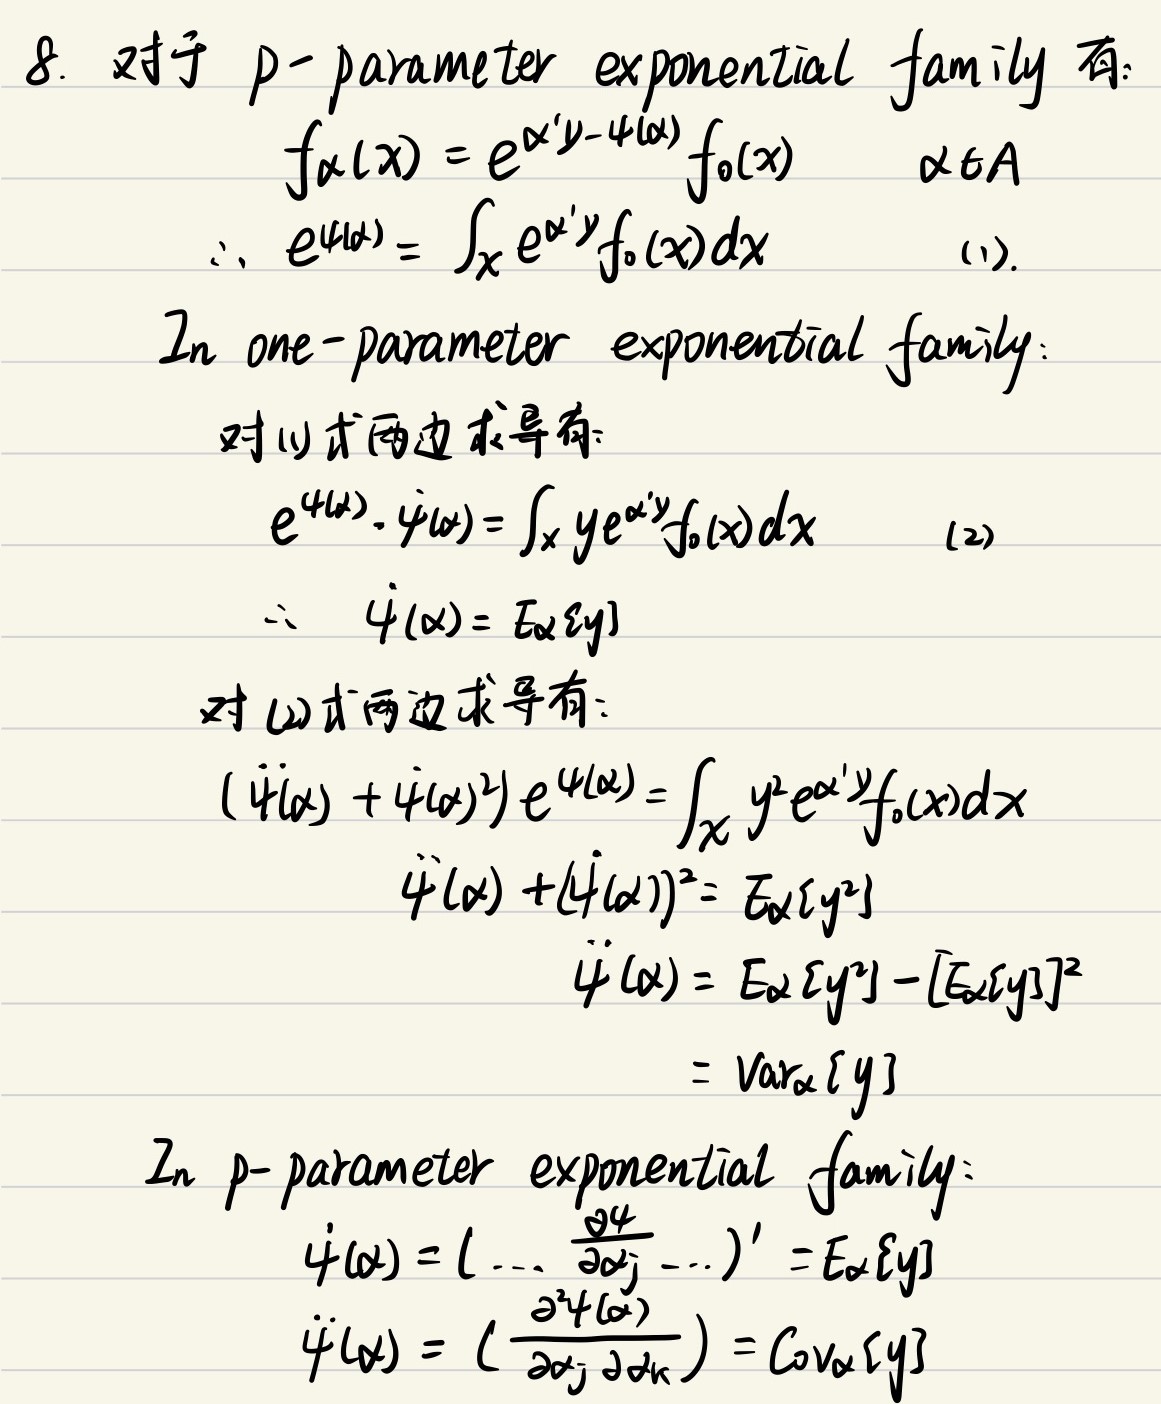 8. 对于 p-parameter exponential family 有:
f_α(x) = e^{α'y-ψ(α)} f_0(x) α∈A
∴ e^{ψ(α)} = ∫_X e^{α'y} f_0(x)dx (1).
In one-parameter exponential family:
对(1)式两边求导有:
e^{ψ(α)}·ψ̇(α) = ∫_X ye^{α'y} f_0(x)dx (2)
∴ ψ̇(α) = E_α{y}
对(2)式两边求导有:
(ψ̈(α) + ψ̇(α)²) e^{ψ(α)} = ∫_X y²e^{α'y} f_0(x)dx
ψ̈(α) + (ψ̇(α))² = E_α{y²}
ψ̈(α) = E_α{y²} - [E_α{y}]²
= Var_α{y}
In p-parameter exponential family:
ψ̇(α) = (... ∂ψ/∂α_j ...)' = E_α{y}
ψ̈(α) = (∂²ψ(α)/∂α_j ∂α_k) = Cov_α{y}